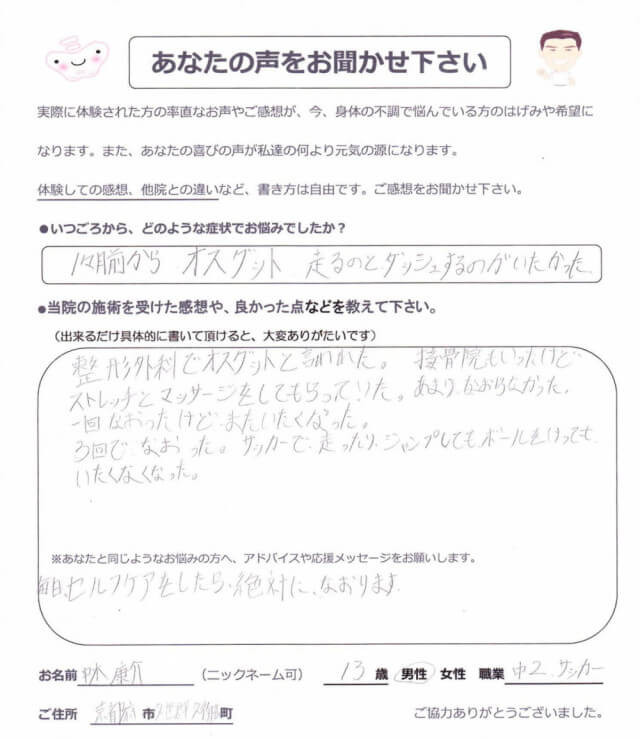 あなたの声をお聞かせ下さい
実際に体験された方の率直なお声やご感想が、今、身体の不調で悩んでいる方のはげみや希望に
なります。また、あなたの喜びの声が私達の何より元気の源になります。
体験しての感想、他院との違いなど、書き方は自由です。ご感想をお聞かせ下さい。
●いつごろから、どのような症状でお悩みでしたか？
前から オスグット 走るのとダッシュするのがいたかった
●当院の施術を受けた感想や、良かった点などを教えて下さい。
（出来るだけ具体的に書いて頂けると、大変ありがたいです）
整形外科でオスグットと言われた。 接骨院もいったけど
ストレッチとマッサージをしてもらっていた。あまりなおらなかった。
一回なおったけど、またいたくなった。
3回でなおった。サッカーで走ったり、ジャンプしても、ボールをけっても、
いたくなくなった。
※あなたと同じようなお悩みの方へ、アドバイスや応援メッセージをお願いします。
毎日セルフケアをしたら、絶対に、なおります
お名前 （ニックネーム可） 13 歳 男性 女性 職業 中2 サッカー
ご住所 市 町 ご協力ありがとうございました。